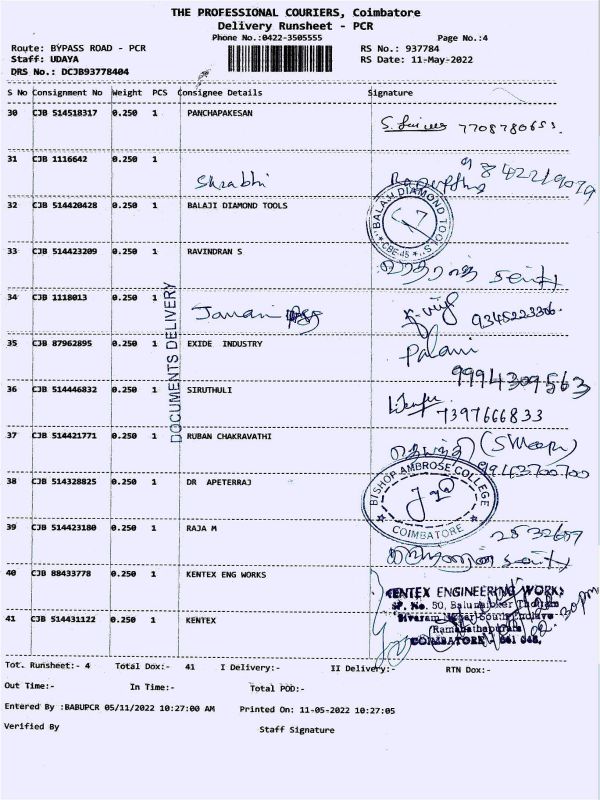 THE PROFESSIONAL COURIERS, Coimbatore
Delivery Runsheet - PCR
Phone No.:0422-3505555
Page No.:4
Route: BYPASS ROAD - PCR
RS No.: 937784
Staff: UDAYA
RS Date: 11-May-2022
DRS No.: DCJB93778404
S No Consignment No Weight PCS Consignee Details Signature
30 CJB 514518317 0.250 1 PANCHAPAKESAN
7708780653.
31 CJB 1116642 0.250 1
Shrabhi
32 CJB 514420428 0.250 1 BALAJI DIAMOND TOOLS
BALAJI DIAMOND TOOLS
CBE-45
33 CJB 514423209 0.250 1 RAVINDRAN S
34 CJB 1118013 0.250 1
Janani
9345223306.
DOCUMENTS DELIVERY
35 CJB 87962895 0.250 1 EXIDE INDUSTRY
Palani
9994309563
36 CJB 514446832 0.250 1 SIRUTHULI
7397666833
37 CJB 514421771 0.250 1 RUBAN CHAKRAVATHI
9943700700
38 CJB 514328825 0.250 1 DR APETERRAJ
BISHOP AMBROSE COLLEGE
COIMBATORE
39 CJB 514423180 0.250 1 RAJA M
40 CJB 88433778 0.250 1 KENTEX ENG WORKS
KENTEX ENGINEERING WORKS
SF. No. 50,
Ramanathapuram
COIMBATORE - 641 045.
41 CJB 514431122 0.250 1 KENTEX
Tot. Runsheet:- 4 Total Dox:- 41 I Delivery:- II Delivery:- RTN Dox:-
Out Time:- In Time:- Total POD:-
Entered By :BABUPCR 05/11/2022 10:27:00 AM Printed On: 11-05-2022 10:27:05
Verified By Staff Signature